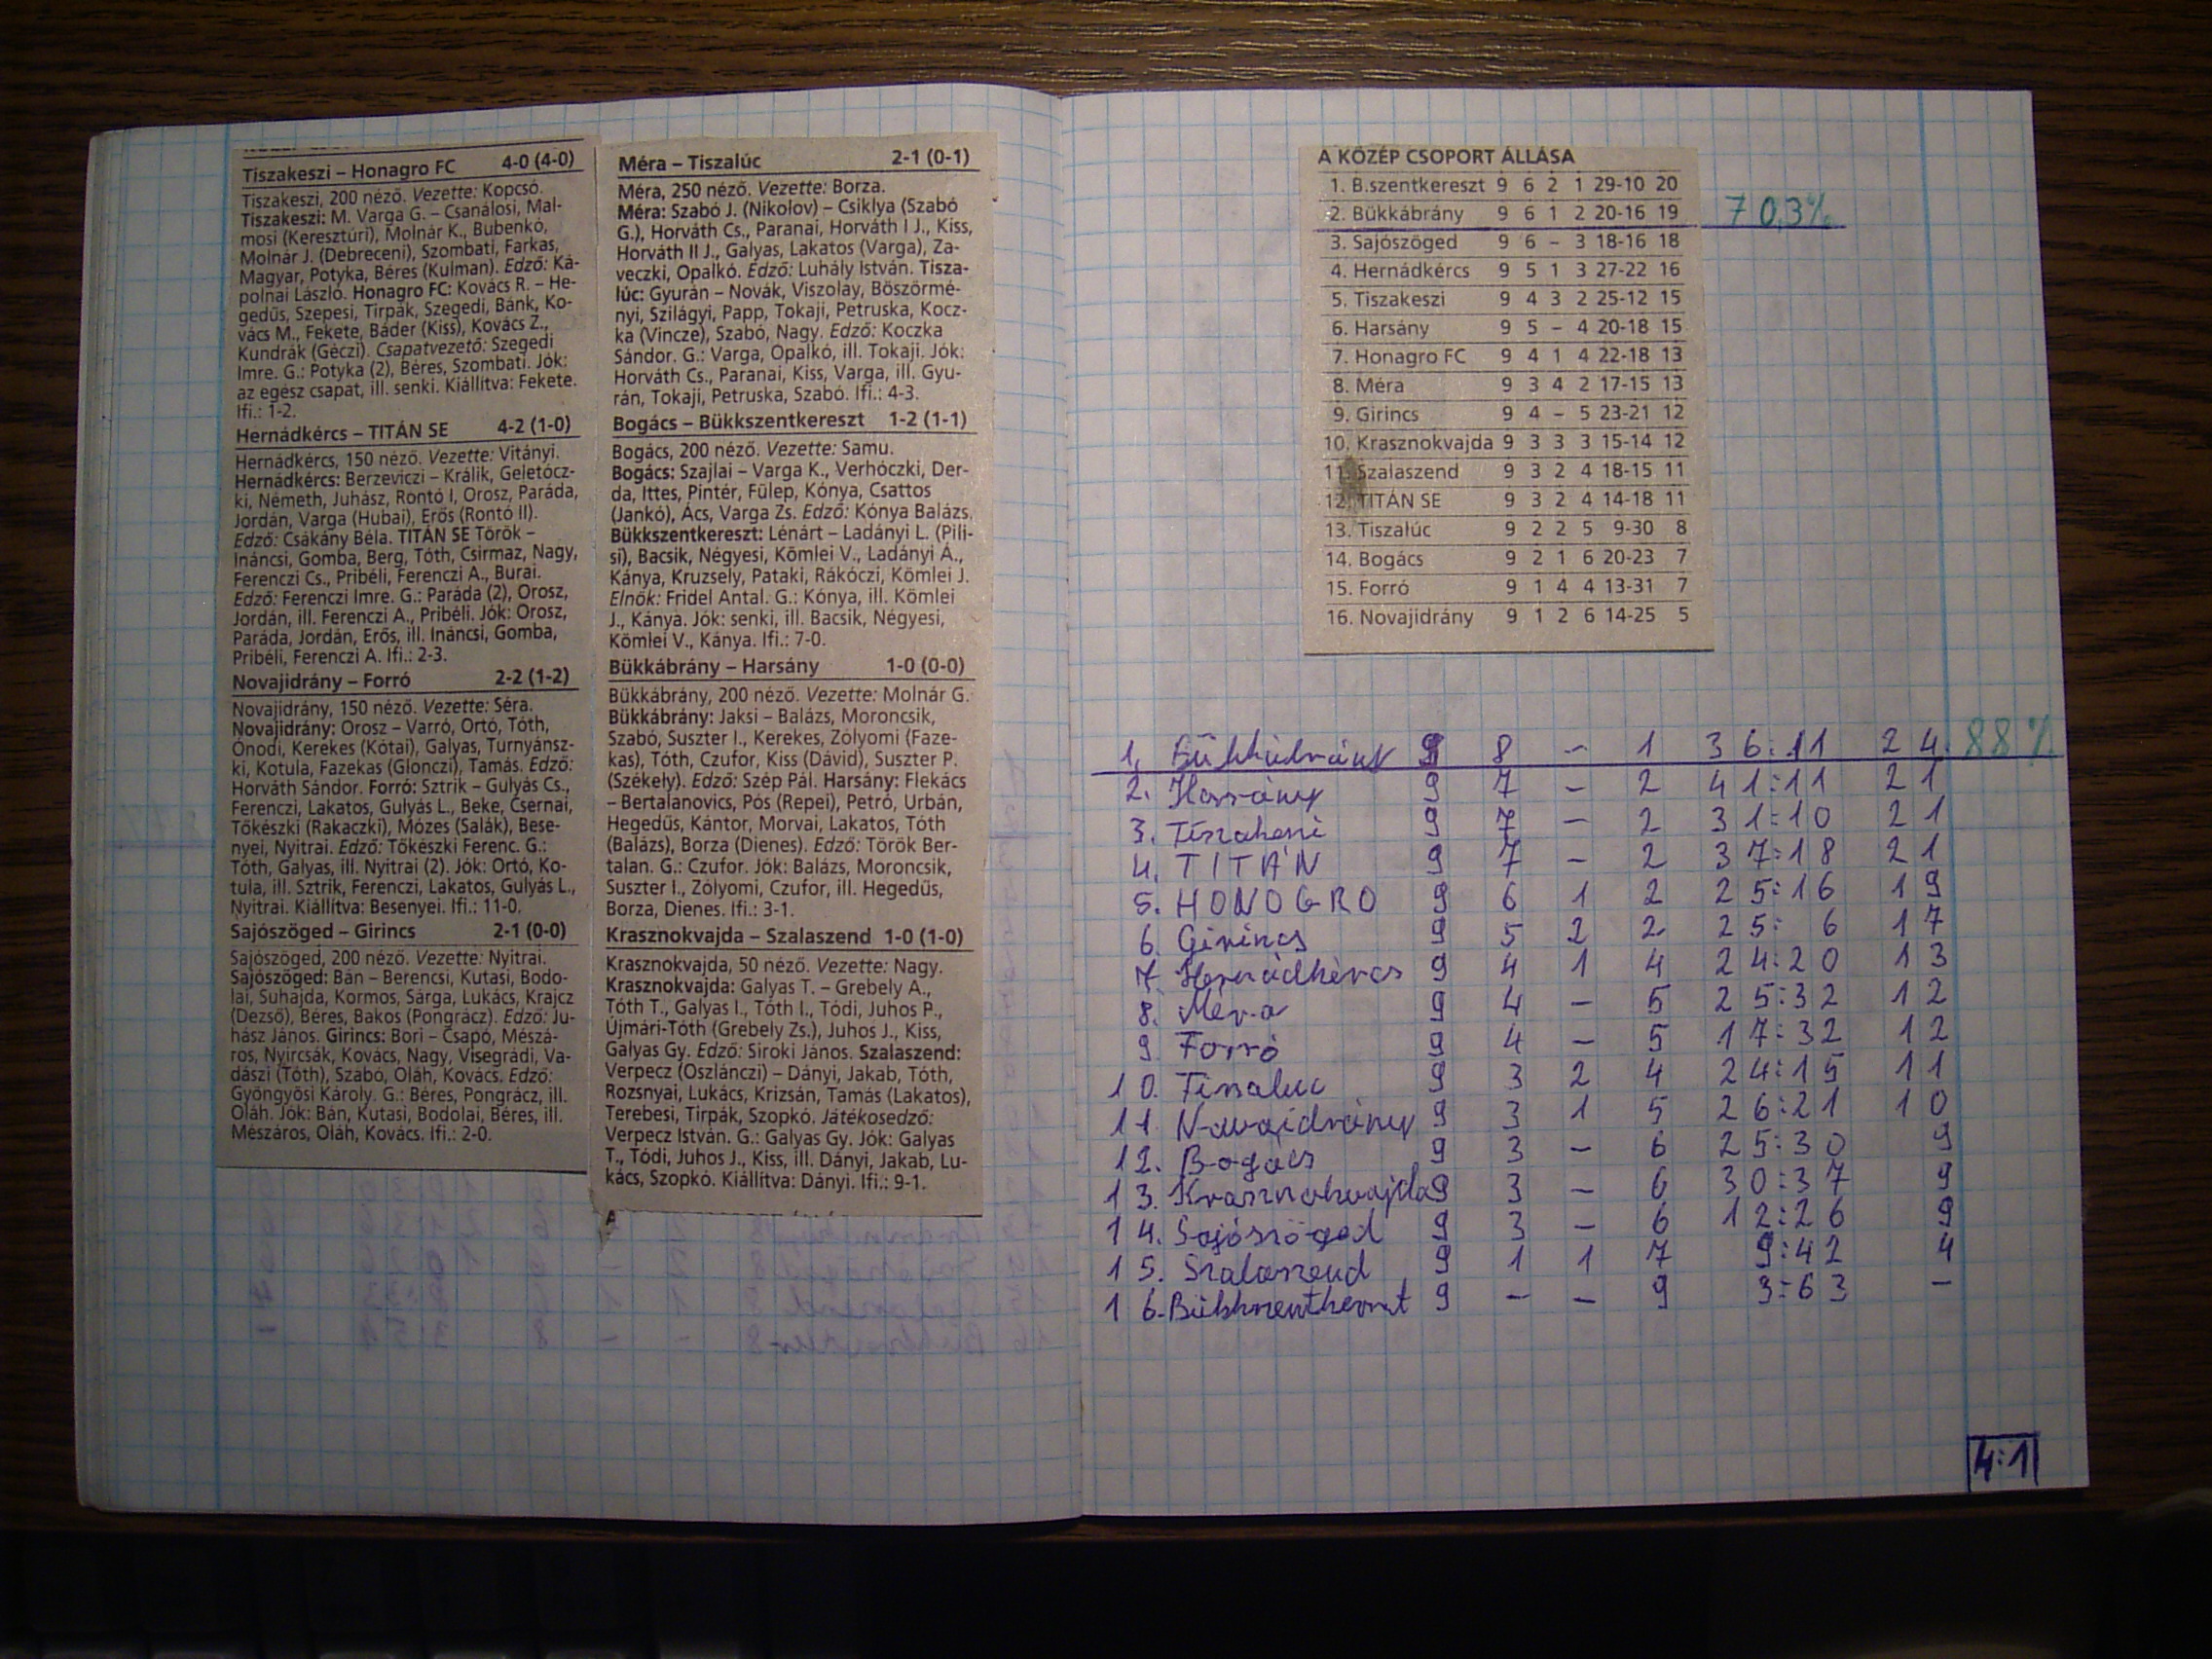 Tiszakeszi – Honagro FC 4-0 (4-0)
Tiszakeszi, 200 néző. Vezette: Kopcsó.
Tiszakeszi: M. Varga G. – Csanálosi, Mal-
mosi (Keresztúri), Molnár K., Bubenkó,
Molnár J. (Debreceni), Szombati, Farkas,
Magyar, Potyka, Béres (Kulman). Edző: Ká-
polnai László. Honagro FC: Kovács R. – He-
gedűs, Szepesi, Tirpák, Szegedi, Bánk, Ko-
vács M., Fekete, Báder (Kiss), Kovács Z.,
Kundrák (Géczi). Csapatvezető: Szegedi
Imre. G.: Potyka (2), Béres, Szombati. Jók:
az egész csapat, ill. senki. Kiállítva: Fekete.
Ifi.: 1-2.
Hernádkércs – TITÁN SE 4-2 (1-0)
Hernádkércs, 150 néző. Vezette: Vitányi.
Hernádkércs: Berzeviczi – Králik, Geletócz-
ki, Németh, Juhász, Rontó I, Orosz, Paráda,
Jordán, Varga (Hubai), Erős (Rontó II).
Edző: Csákány Béla. TITÁN SE Török –
Ináncsi, Gomba, Berg, Tóth, Csirmaz, Nagy,
Ferenczi Cs., Pribéli, Ferenczi A., Burai.
Edző: Ferenczi Imre. G.: Paráda (2), Orosz,
Jordán, ill. Ferenczi A., Pribéli. Jók: Orosz,
Paráda, Jordán, Erős, ill. Ináncsi, Gomba,
Pribéli, Ferenczi A. Ifi.: 2-3.
Novajidrány – Forró 2-2 (1-2)
Novajidrány, 150 néző. Vezette: Séra.
Novajidrány: Orosz – Varró, Ortó, Tóth,
Ónodi, Kerekes (Kótai), Galyas, Turnyánsz-
ki, Kotula, Fazekas (Glonczi), Tamás. Edző:
Horváth Sándor. Forró: Sztrik – Gulyás Cs.,
Ferenczi, Lakatos, Gulyás L., Beke, Csernai,
Tőkészki (Rakaczki), Mózes (Salák), Bese-
nyei, Nyitrai. Edző: Tőkészki Ferenc. G.:
Tóth, Galyas, ill. Nyitrai (2). Jók: Ortó, Ko-
tula, ill. Sztrik, Ferenczi, Lakatos, Gulyás L.,
Nyitrai. Kiállítva: Besenyei. Ifi.: 11-0.
Sajószöged – Girincs 2-1 (0-0)
Sajószöged, 200 néző. Vezette: Nyitrai.
Sajószöged: Bán – Berencsi, Kutasi, Bodo-
lai, Suhajda, Kormos, Sárga, Lukács, Krajcz
(Dezső), Béres, Bakos (Pongrácz). Edző: Ju-
hász János. Girincs: Bori – Csapó, Mészá-
ros, Nyircsák, Kovács, Nagy, Visegrádi, Va-
dászi (Tóth), Szabó, Oláh, Kovács. Edző:
Gyöngyösi Károly. G.: Béres, Pongrácz, ill.
Oláh. Jók: Bán, Kutasi, Bodolai, Béres, ill.
Mészáros, Oláh, Kovács. Ifi.: 2-0.
Méra – Tiszalúc 2-1 (0-1)
Méra, 250 néző. Vezette: Borza.
Méra: Szabó J. (Nikolov) – Csiklya (Szabó
G.), Horváth Cs., Paranai, Horváth I J., Kiss,
Horváth II J., Galyas, Lakatos (Varga), Za-
veczki, Opalkó. Edző: Luhály István. Tisza-
lúc: Gyurán – Novák, Viszolay, Böszörmé-
nyi, Szilágyi, Papp, Tokaji, Petruska, Kocz-
ka (Vincze), Szabó, Nagy. Edző: Koczka
Sándor. G.: Varga, Opalkó, ill. Tokaji. Jók:
Horváth Cs., Paranai, Kiss, Varga, ill. Gyu-
rán, Tokaji, Petruska, Szabó. Ifi.: 4-3.
Bogács – Bükkszentkereszt 1-2 (1-1)
Bogács, 200 néző. Vezette: Samu.
Bogács: Szajlai – Varga K., Verhóczki, Der-
da, Ittes, Pintér, Fülep, Kónya, Csattos
(Jankó), Ács, Varga Zs. Edző: Kónya Balázs.
Bükkszentkereszt: Lénárt – Ladányi L. (Pili-
si), Bacsik, Négyesi, Kömlei V., Ladányi Á.,
Kánya, Kruzsely, Pataki, Rákóczi, Kömlei J.
Elnök: Fridel Antal. G.: Kónya, ill. Kömlei
J., Kánya. Jók: senki, ill. Bacsik, Négyesi,
Kömlei V., Kánya. Ifi.: 7-0.
Bükkábrány – Harsány 1-0 (0-0)
Bükkábrány, 200 néző. Vezette: Molnár G.
Bükkábrány: Jaksi – Balázs, Moroncsik,
Szabó, Suszter I., Kerekes, Zólyomi (Faze-
kas), Tóth, Czufor, Kiss (Dávid), Suszter P.
(Székely). Edző: Szép Pál. Harsány: Flekács
– Bertalanovics, Pós (Repei), Petró, Urbán,
Hegedűs, Kántor, Morvai, Lakatos, Tóth
(Balázs), Borza (Dienes). Edző: Török Ber-
talan. G.: Czufor. Jók: Balázs, Moroncsik,
Suszter I., Zólyomi, Czufor, ill. Hegedűs,
Borza, Dienes. Ifi.: 3-1.
Krasznokvajda – Szalaszend 1-0 (1-0)
Krasznokvajda, 50 néző. Vezette: Nagy.
Krasznokvajda: Galyas T. – Grebely A.,
Tóth T., Galyas I., Tóth I., Tódi, Juhos P.,
Újmári-Tóth (Grebely Zs.), Juhos J., Kiss,
Galyas Gy. Edző: Siroki János. Szalaszend:
Verpecz (Oszlánczi) – Dányi, Jakab, Tóth,
Rozsnyai, Lukács, Krizsán, Tamás (Lakatos),
Terebesi, Tirpák, Szopkó. Játékosedző:
Verpecz István. G.: Galyas Gy. Jók: Galyas
T., Tódi, Juhos J., Kiss, ill. Dányi, Jakab, Lu-
kács, Szopkó. Kiállítva: Dányi. Ifi.: 9-1.
A KÖZÉP CSOPORT ÁLLÁSA
1. B.szentkereszt 9 6 2 1 29-10 20
2. Bükkábrány 9 6 1 2 20-16 19 70,3%
3. Sajószöged 9 6 – 3 18-16 18
4. Hernádkércs 9 5 1 3 27-22 16
5. Tiszakeszi 9 4 3 2 25-12 15
6. Harsány 9 5 – 4 20-18 15
7. Honagro FC 9 4 1 4 22-18 13
8. Méra 9 3 4 2 17-15 13
9. Girincs 9 4 – 5 23-21 12
10. Krasznokvajda 9 3 3 3 15-14 12
11. Szalaszend 9 3 2 4 18-15 11
12. TITÁN SE 9 3 2 4 14-18 11
13. Tiszalúc 9 2 2 5 9-30 8
14. Bogács 9 2 1 6 20-23 7
15. Forró 9 1 4 4 13-31 7
16. Novajidrány 9 1 2 6 14-25 5
1. Bükkábrány 9 8 – 1 36:11 24. 88%
2. Harsány 9 7 – 2 41:11 21
3. Tiszakeszi 9 7 – 2 31:10 21
4. TITÁN 9 7 – 2 37:18 21
5. HONOGRO 9 6 1 2 25:16 19
6. Girincs 9 5 2 2 25:6 17
7. Hernádkércs 9 4 1 4 24:20 13
8. Mera 9 4 – 5 25:32 12
9. Forró 9 4 – 5 17:32 12
10. Tiszaluc 9 3 2 4 24:15 11
11. Novajdrány 9 3 1 5 26:21 10
12. Bogács 9 3 – 6 25:30 9
13. Krasznokvajda 9 3 – 6 30:37 9
14. Sajószöged 9 3 – 6 12:26 9
15. Szalaszend 9 1 1 7 9:42 4
16. Bükkszentkereszt 9 – – 9 3:63 –
4:1